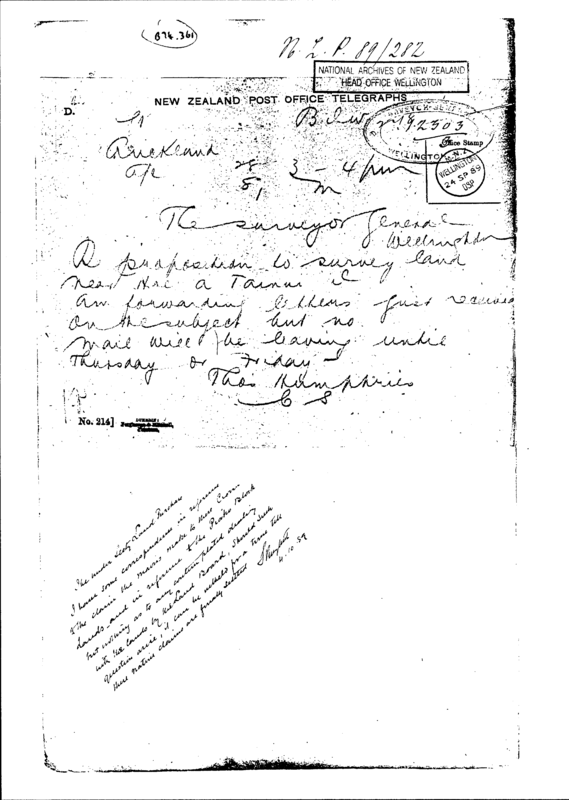 874.361
N. L. P. 89/282
NATIONAL ARCHIVES OF NEW ZEALAND
HEAD OFFICE WELLINGTON
D.
NEW ZEALAND POST OFFICE TELEGRAPHS
92303
WELLINGTON N.Z.
Office Stamp
WELLINGTON
24 SP 89
Auckland
3 - 4 pm
The Surveyor General
Wellington
proposition to survey land
near a Tainui
Am forwarding letters just received
on the subject but no
mail will be leaving until
Thursday or Friday
Thos Humphries
C S
No. 214]
The Under Secty Land Purchase
I have some correspondence in reference
to the claim the maoris make to these Crown
Lands and in reference to the Block
but nothing as to any contemplated dealing
with the lands by the Land Board. Should such
question arise, it can be withheld for a time till
these native claims are finally settled
4.10.89